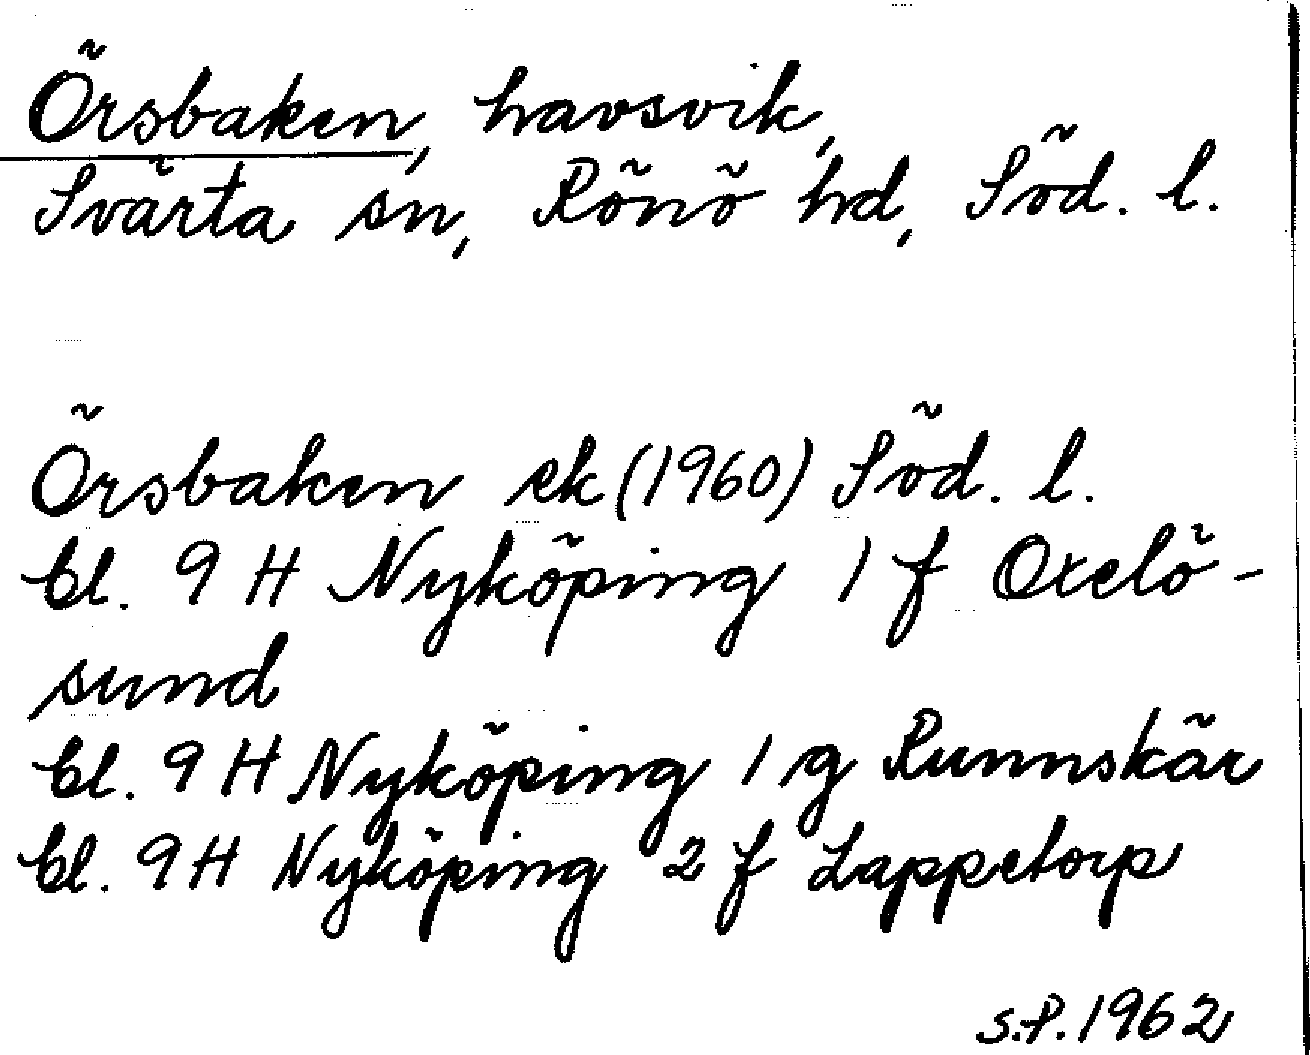 Örsbaken, havsvik,
Svärta sn, Rönö hd, Söd. l.
Örsbaken ek (1960) Söd. l.
bl. 9 H Nyköping 1 f Oxelö-
sund
bl. 9 H Nyköping 1 g Runnskär
bl. 9 H Nyköping 2 f Lappetorp
S.P. 1962